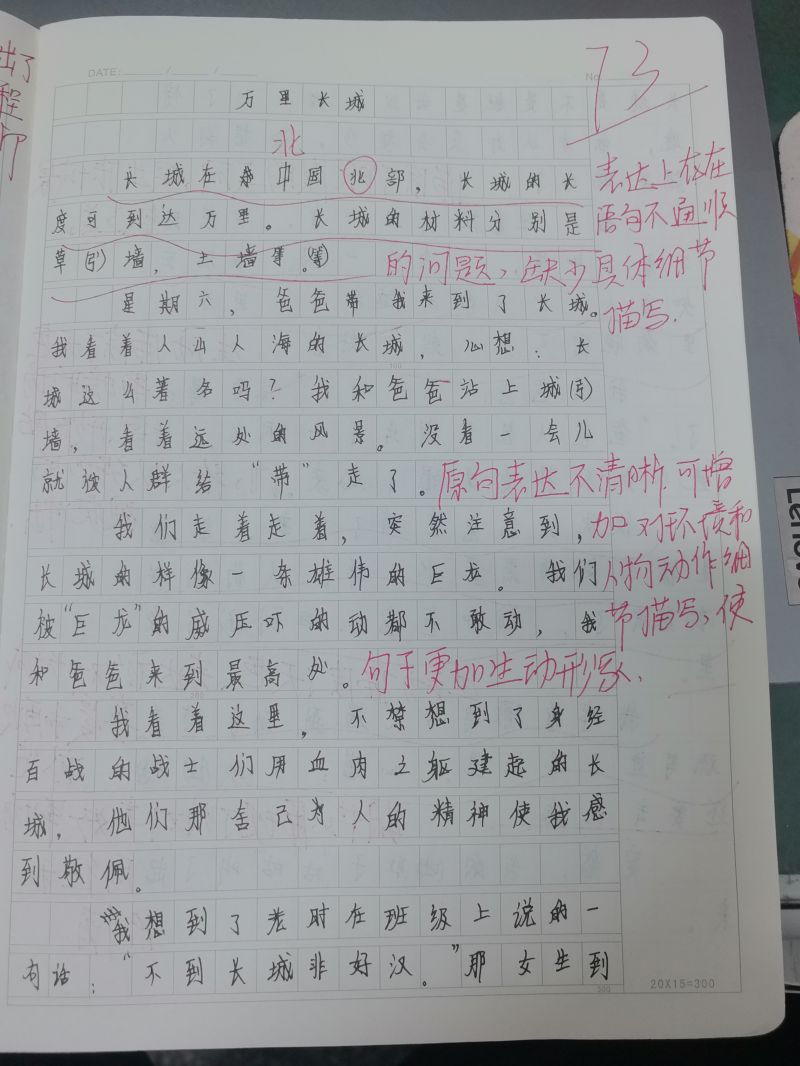 出了
程
DATE: / /
No
73
万里长城
北
长城在中国北部，长城的长
表达上存在
度可到达万里。长城的材料分别是
语句不通顺
草(引)墙，土墙等。(等)
的问题，缺少具体细节
描写.
星期六，爸爸带我来到了长城。
我看着人山人海的长城，心想：长
城这么著名吗？我和爸爸站上城(引)
墙，看着远处的风景。没看一会儿
就被人群给“带”走了。
原句表达不清晰，可增
我们走着走着，突然注意到，
加对环境和
长城的样像一条雄伟的巨龙。我们
人物动作细
被“巨龙”的威压吓的动都不敢动，我
节描写，使
和爸爸来到最高处。
句子更加生动形象.
我看着这里，不禁想到了身经
百战的战士们用血肉之躯建起的长
城，他们那舍己为人的精神使我感
到敬佩。
我想到了老时在班级上说的一
句话：“不到长城非好汉。”那女生到
20X15=300
Leno